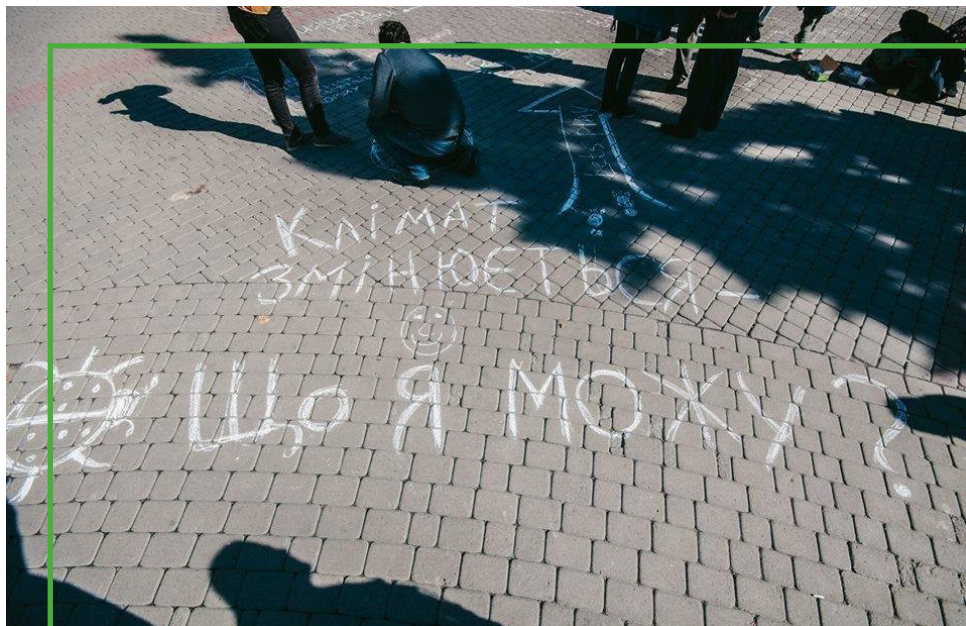 Клімат
змінюється –
Що я можу?